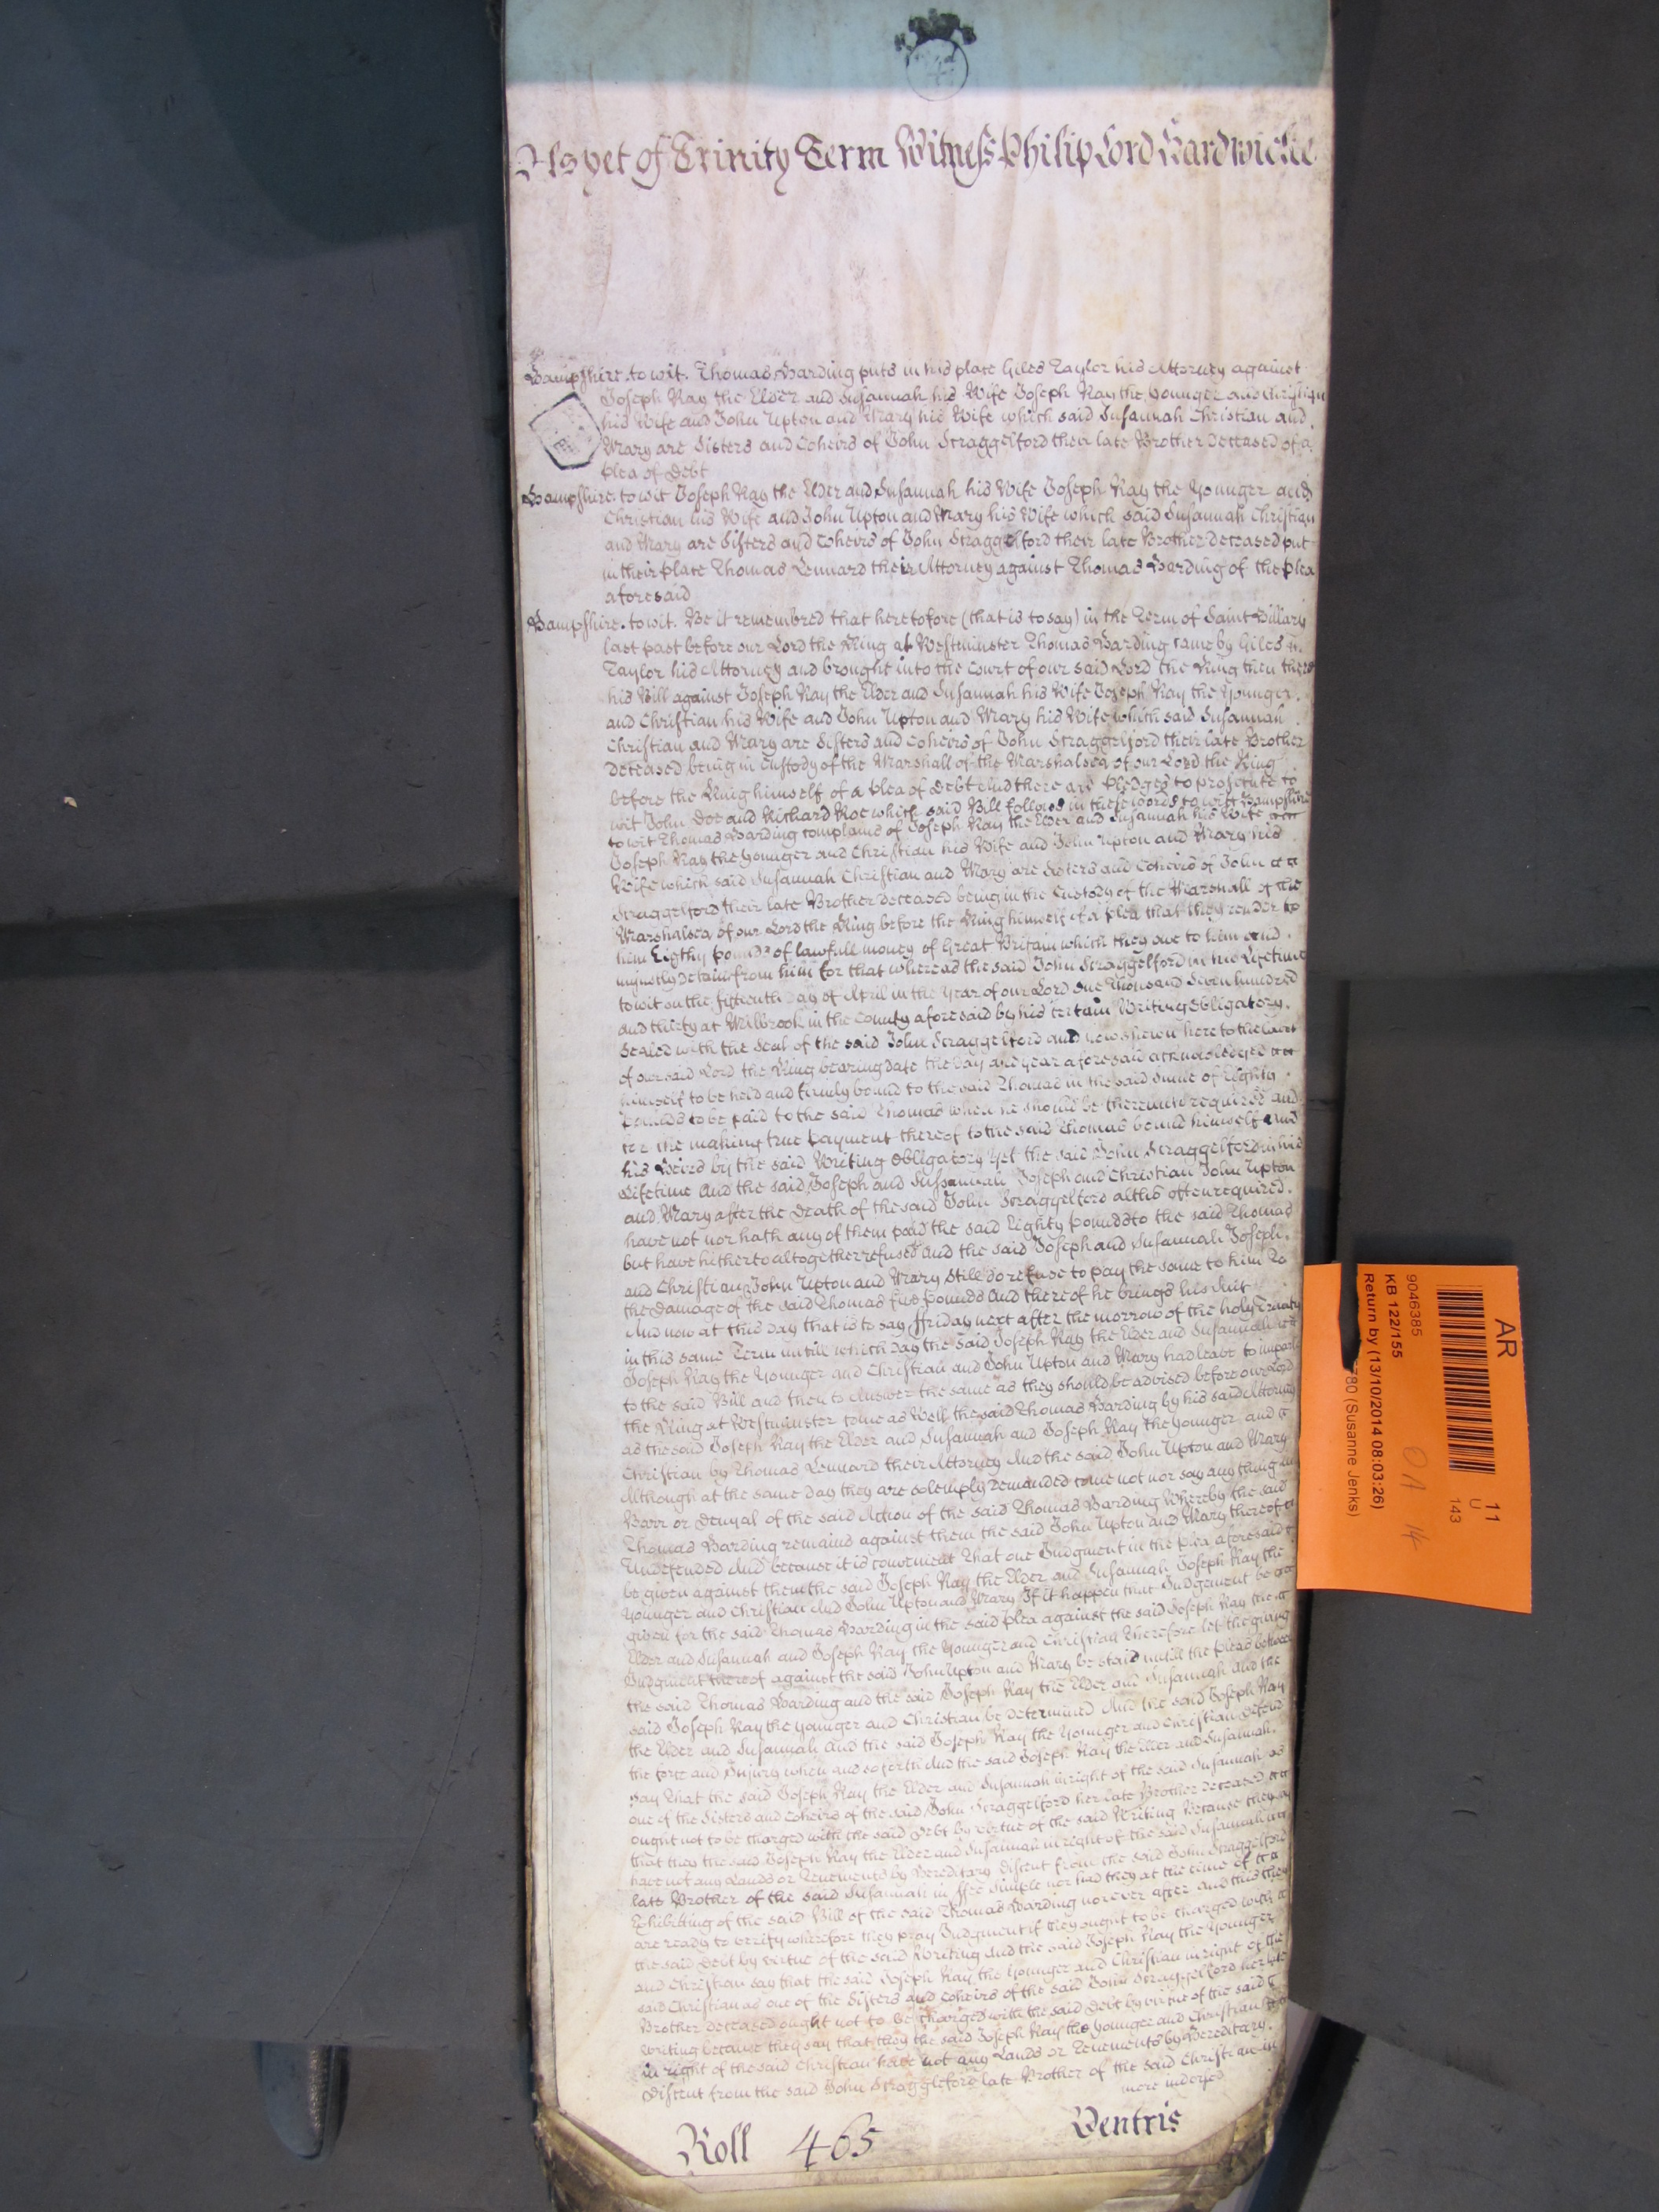 As yet of Trinity Term Witness Philip Lord Hardwicke
Hampshire. to wit. Thomas Harding puts in his place Giles Taylor his Attorney against
Joseph Ray the Elder and Susannah his Wife Joseph Ray the Younger and Christian
his Wife and John Upton and Mary his Wife which said Susannah Christian and
Mary are Sisters and Coheirs of John Scraggelford their late Brother deceased of a
plea of Debt
Hampshire. to wit Joseph Ray the Elder and Susannah his Wife Joseph Ray the Younger and
Christian his Wife and John Upton and Mary his Wife which said Susannah Christian
and Mary are Sisters and Coheirs of John Scraggelford their late Brother deceased put
in their place Thomas Lennard their Attorney against Thomas Harding of the plea
aforesaid
Hampshire. to wit. Be it remembred that heretofore (that is to say) in the Term of Saint Hillary
last past before our Lord the King at Westminster Thomas Harding came by Giles
Taylor his Attorney and brought into the Court of our said Lord the King then there
his Bill against Joseph Ray the Elder and Susannah his Wife Joseph Ray the Younger.
and Christian his Wife and John Upton and Mary his Wife which said Susannah
Christian and Mary are Sisters and Coheirs of John Scraggelford their late Brother
deceased being in Custody of the Marshall of the Marshalsea of our Lord the King
before the King himself of a plea of Debt And there are pledges to prosecute to
wit John Doe and Richard Roe which said Bill follows in these words to witt Hampshire
to wit Thomas Harding complains of Joseph Ray the Elder and Susannah his Wife
Joseph Ray the Younger and Christian his Wife and John Upton and Mary his
Wife which said Susannah Christian and Mary are Sisters and Coheirs of John
Scraggelford their late Brother deceased being in the Custody of the Marshall of the
Marshalsea of our Lord the King before the King himself of a plea that they render to
him Eigthy pounds of lawfull money of Great Britain which they owe to him and
unjustly detain from him for that whereas the said John Scraggelford in his Lifetime
to wit on the fifteenth Day of April in the Year of our Lord One Thousand Seven hundred
and thirty at Milbrook in the County aforesaid by his certain Writing Obligatory.
Sealed with the Seal of the said John Scraggelford and now shewn here to the Court
of our said Lord the King bearing date the Day and Year aforesaid acknowledged
himself to be held and firmly bound to the said Thomas in the said Summ of Eighty
pounds to be paid to the said Thomas when he should be thereunto required and
for the making true payment thereof to the said Thomas bound himself and
his Heirs by the said Writing Obligatory Yet the said John Scraggelford in his
Lifetime And the said Joseph and Sussannah Joseph and Christian John Upton
and Mary after the Death of the said John Scraggelford altho often required.
have not nor hath any of them paid the said Eighty pounds to the said Thomas
but have hitherto altogether refused and the said Joseph and Susannah Joseph.
and Christian John Upton and Mary still do refuse to pay the same to him To
the Damage of the said Thomas five pounds And thereof he brings his Suit
And now at this Day that is to say ffriday next after the morrow of the holy Trinity
in this same Term untill which Day the said Joseph Ray the Elder and Susannah
Joseph Ray the Younger and Christian and John Upton and Mary had leave to imparl
to the said Bill and then to Answer the same as they should be advised before our Lord
the King at Westminster come as Well the said Thomas Harding by his said Attorney
as the said Joseph Ray the Elder and Susannah and Joseph Ray the Younger and
Christian by Thomas Lennard their Attorney And the said John Upton and Mary
Although at the same Day they are solemply demanded come not nor say any thing in
Barr or Denyal of the said Action of the said Thomas Harding Whereby the said
Thomas Harding remains against them the said John Upton and Mary thereof
Undefended And because it is convenient That one Judgment in the plea aforesaid
be given against them the said Joseph Ray the Elder and Susannah Joseph Ray the
Younger and Christian And John Upton and Mary If it happen that Judgement be
given for the said Thomas Harding in the said plea against the said Joseph Ray the
Elder and Susannah and Joseph Ray the Younger and Christian Therefore let the giving
Judgment thereof against the said John Upton and Mary be staid untill the pleas between
the said Thomas Harding and the said Joseph Ray the Elder and Susannah and the
said Joseph Ray the Younger and Christian be determined And the said Joseph Ray
the Elder and Susannah And the said Joseph Ray the Younger and Christian defend
the force and Injury when and so forth And the said Joseph Ray the Elder and Susannah.
say That the said Joseph Ray the Elder and Susannah in right of the said Susannah as
one of the Sisters and Coheirs of the said John Scraggelford her late Brother deceased
ought not to be charged with the said Debt by virtue of the said Writing Because they say
that they the said Joseph Ray the Elder and Susannah in right of the said Susannah
have not any Lands or Tenements by Hereditary Discent from the said John Scraggelford
late Brother of the said Susannah in ffee Simple nor had they at the time of
Exhibitting of the said Bill of the said Thomas Harding nor ever after and this they
are ready to verify wherefore they pray Judgment if they ought to be charged with
the said Debt by virtue of the said Writing And the said Joseph Ray the Younger
and Christian say that the said Joseph Ray the Younger and Christian in right of the
said Christian as one of the Sisters and Coheirs of the said John Scraggelford her late
Brother deceased ought not to be charged with the said Debt by virtue of the said
writing because they say that they the said Joseph Ray the Younger and Christian
in right of the said Christian have not any Lands or Tenements by Hereditary.
Discent from the said John Scraggleford late Brother of the said Christian in
more indorsed
Roll 465
Ventris
AR
11
U
143
9046385
KB 122/155
Return by (13/10/2014 08:03:26)
80 (Susanne Jenks)